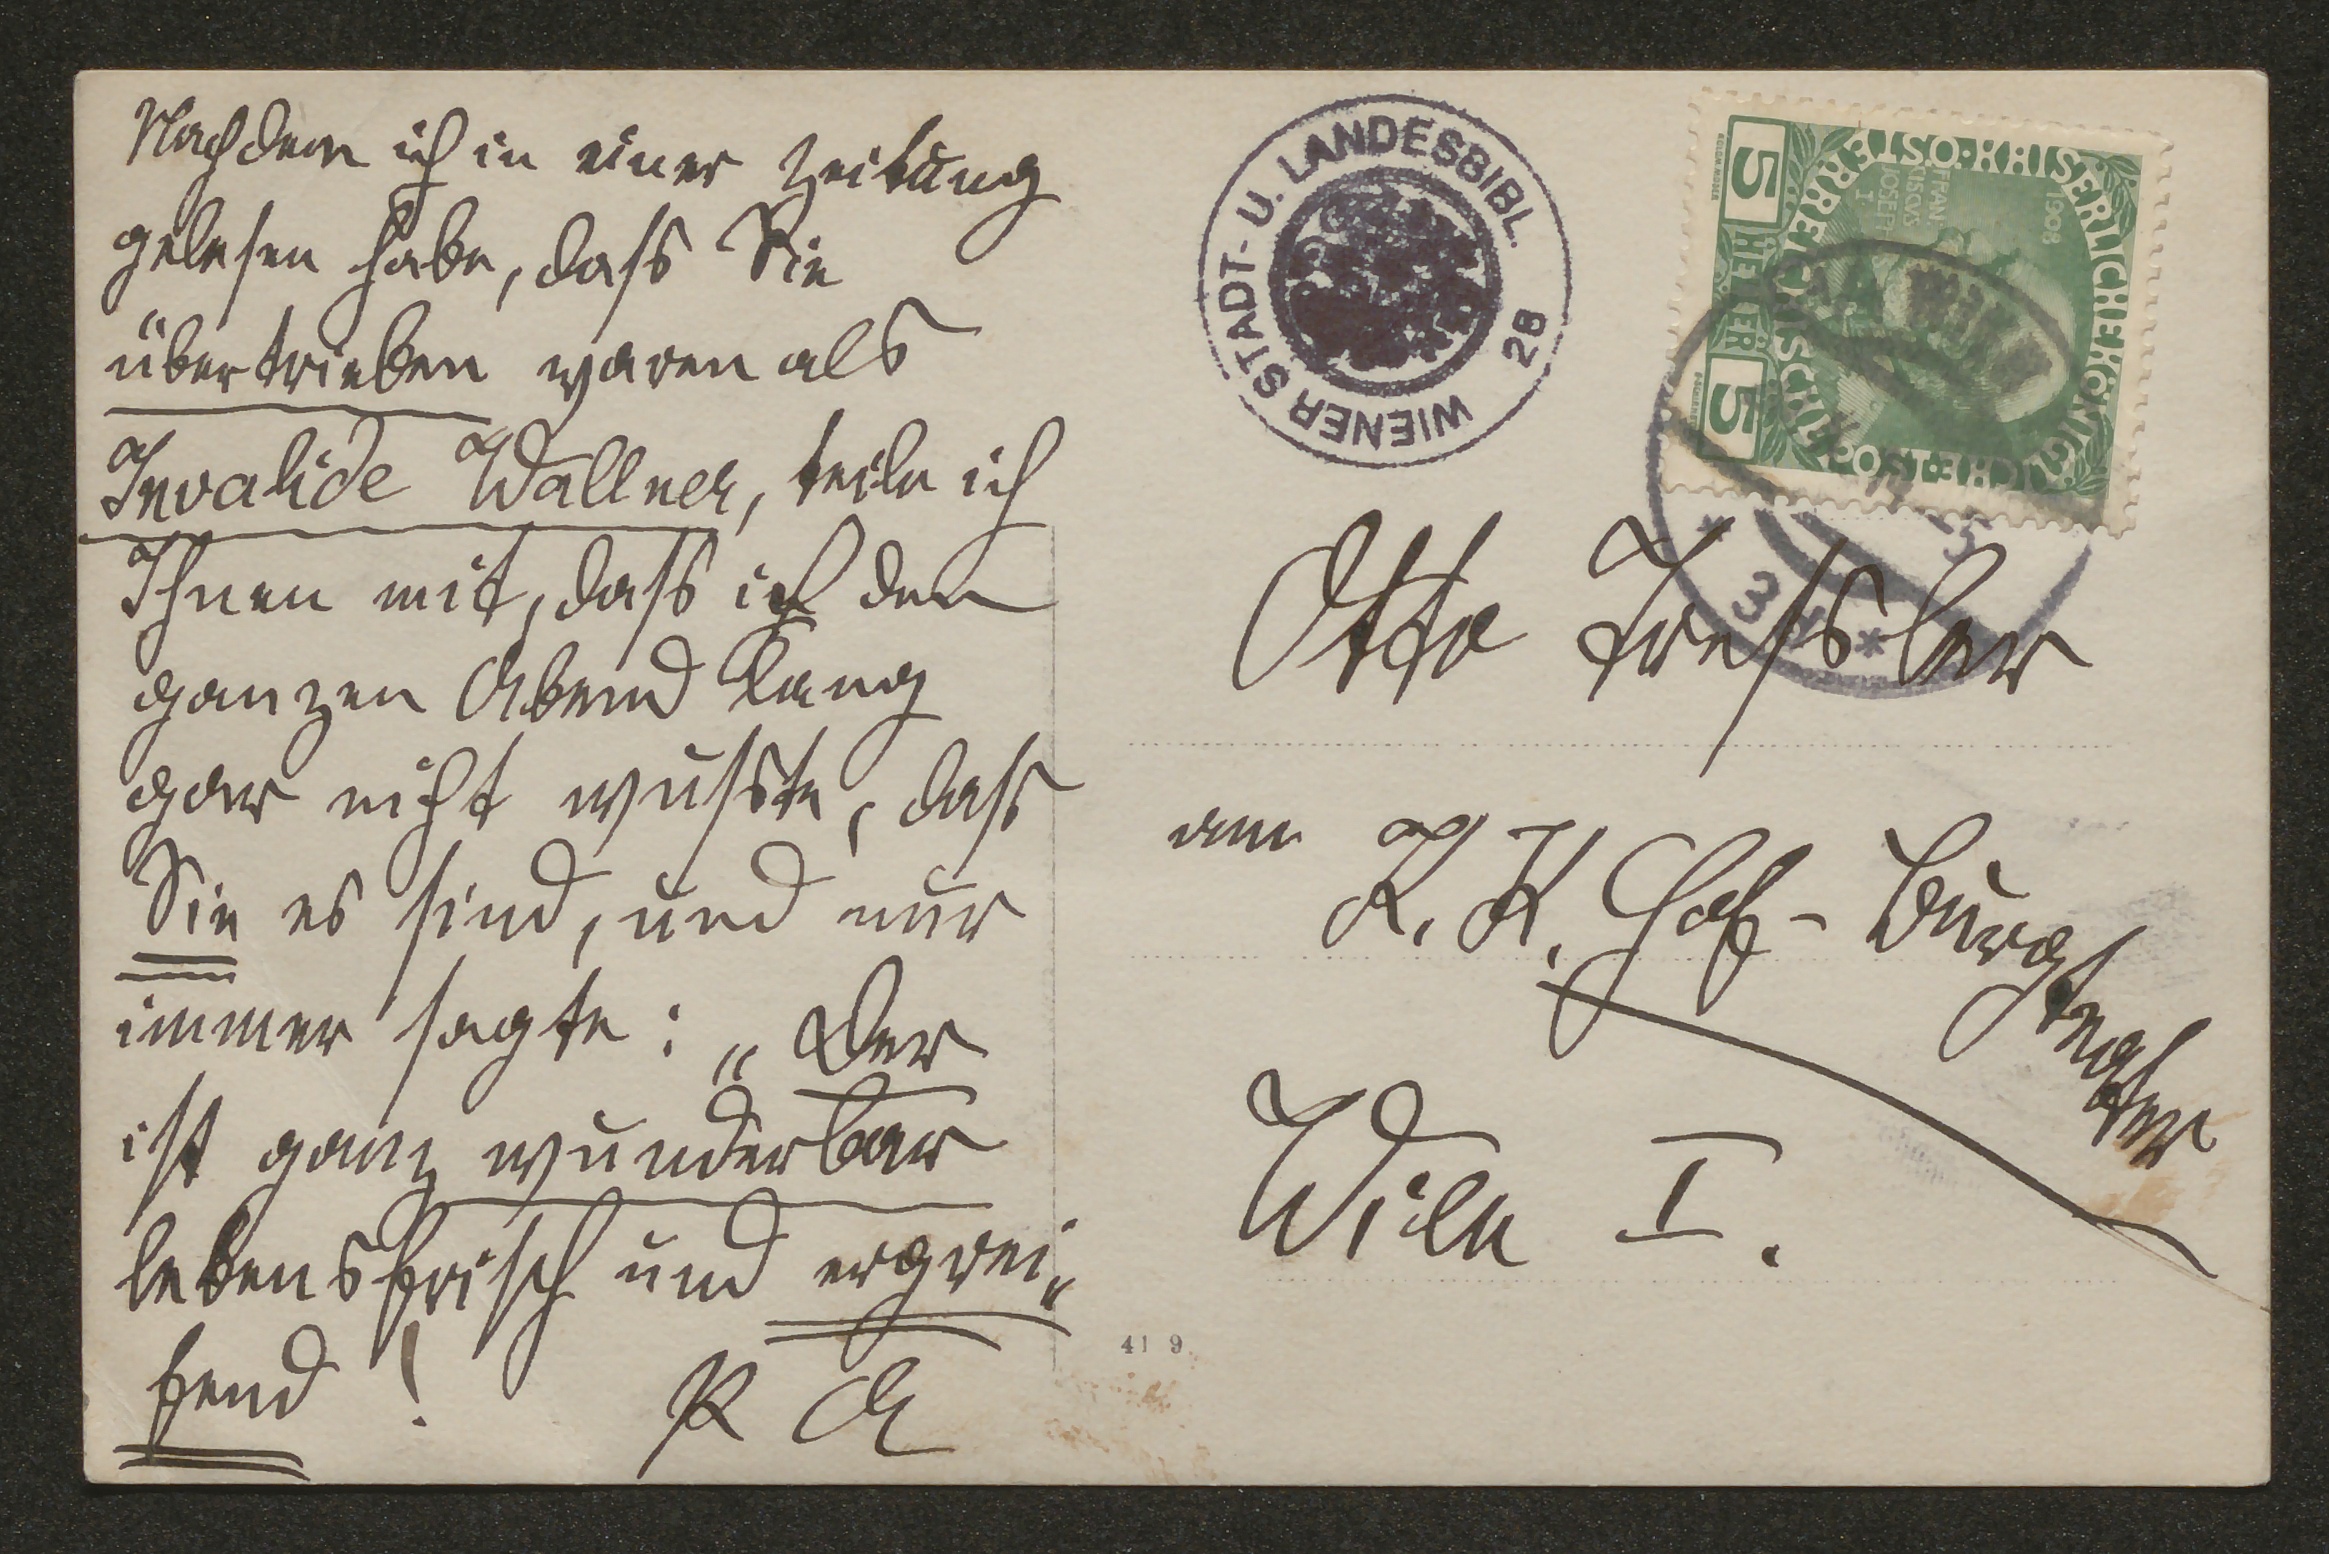 Nachdem ich in einer Zeitung
gelesen habe, dass Sie
übertrieben waren als
Invalide Wallner, teile ich
Ihnen mit, dass ich den
ganzen Abend lang
gar nicht wusste, dass
Sie es sind, und nur
immer sagte: „Der
ist ganz wunderbar
lebensfrisch und ergrei„
fend!
WIENER STADT- U. LANDESBIBL. 28
KAISERLICHE KÖNIGLICHE ÖSTERREICHISCHE POST
1908
5 HELLER 5
WIEN
Otto Tressler
am K. K. Hof-Burgtheater
Wien I.
41 9